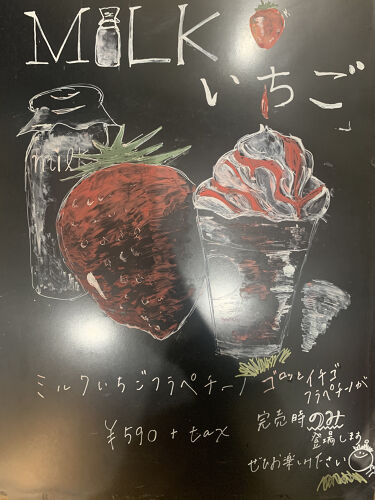 MILK
いちご
milk
ミルクいちごフラペチーノ
ゴロッとイチゴ
フラペチーノが
完売時のみ
登場します
ぜひお楽しみください
¥590 + tax